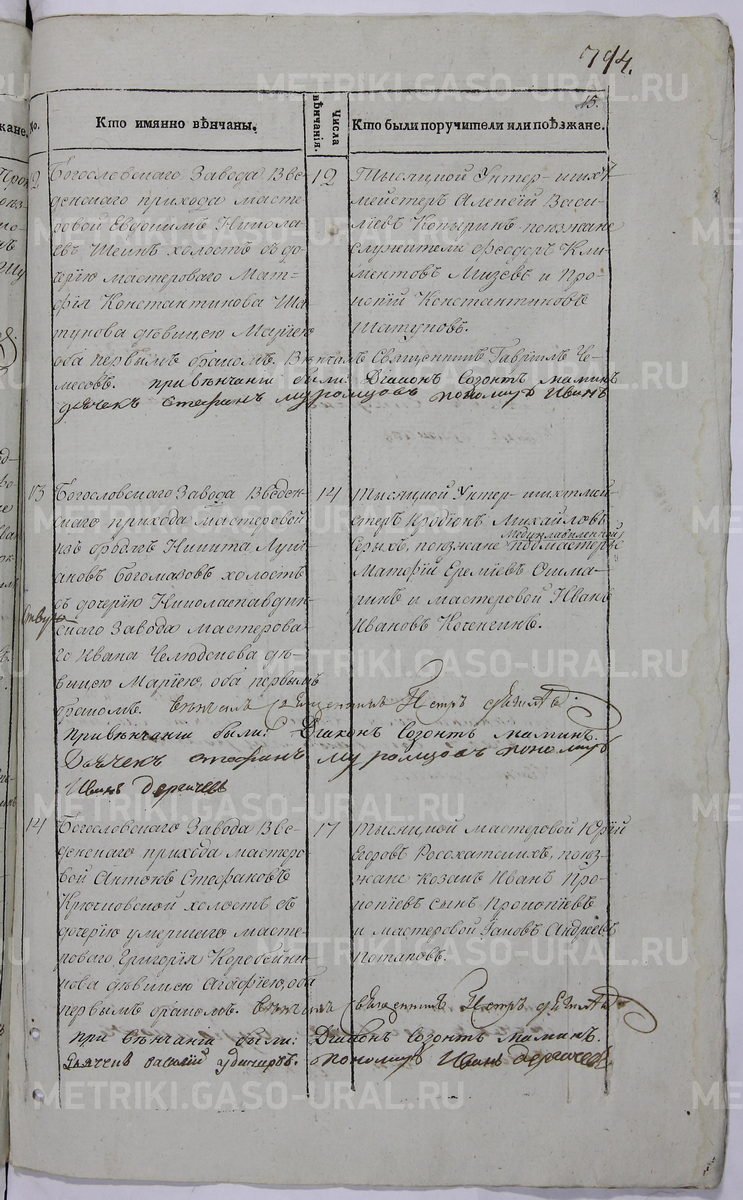 794.
15.
No.
Кто имянно вѣнчаны.
Числа вѣнчанія.
Кто были поручители или поѣзжане.
12
Богословскаго Завода Вве-
денскаго прихода масте-
ровой Евдокимъ Никола-
евъ Шеинъ холостъ съ до-
черію мастероваго Мат-
фія Константинова Ша
тунова дѣвицею Маріею
оба первымъ бракомъ. Вѣнчалъ Священникъ Гавріилъ Че-
месовъ. при вѣнчаніи были: Діаконъ Созонтъ Маминъ
дьячекъ Стефанъ Муромцовъ пономарь Иванъ
12
Тысяцкой Унтер-шихт
мейстеръ Алексій Васи-
лiевъ Копыринъ поѣзжане
служители Феодоръ Кли-
ментовъ Мизевъ и Про-
копій Константиновъ
Шатуновъ.
13
Богословскаго Завода Введен-
скаго прихода мастеровой
Никита
Богомазовъ холостъ
съ дочерію Николаепавдин-
скаго Завода мастерова-
го Ивана Челюдскова дѣ-
вицею Маріею, оба первымъ
бракомъ. вѣнчалъ Священникъ Петръ
При вѣнчаніи были: Діаконъ Созонтъ Маминъ.
Дьячекъ Стефанъ Муромцовъ пономарь
Иванъ Дергачевъ
14
Тысяцкой Унтер-шихтмей-
стеръ Иродіонъ Михайловъ
Сѣрыхъ, поѣзжане медиплавиленный подмастерье
Матфій Еремѣевъ
и мастеровой Иванъ
Ивановъ
14
Богословскаго Завода Вве-
денскаго прихода мастеро-
вой Антонъ Стефановъ
Крючковской холостъ съ
дочерію умершаго масте-
роваго Григорія Коровкин-
кова дѣвицею Агафіею, оба
первымъ бракомъ. вѣнчалъ Священникъ Петръ
при вѣнчаніи были: Діаконъ Созонтъ Маминъ.
Дьячекъ василій пономарь Иванъ Дергачевъ
17
Тысяцкой мастеровой Юрій
Егоровъ Росохатскихъ, поѣз-
жане козакъ Иванъ Про-
копіевъ сынъ Прокопіевъ
и мастеровой Іаковъ Андреевъ
Потаповъ.
METRIKI.GASO-URAL.RU